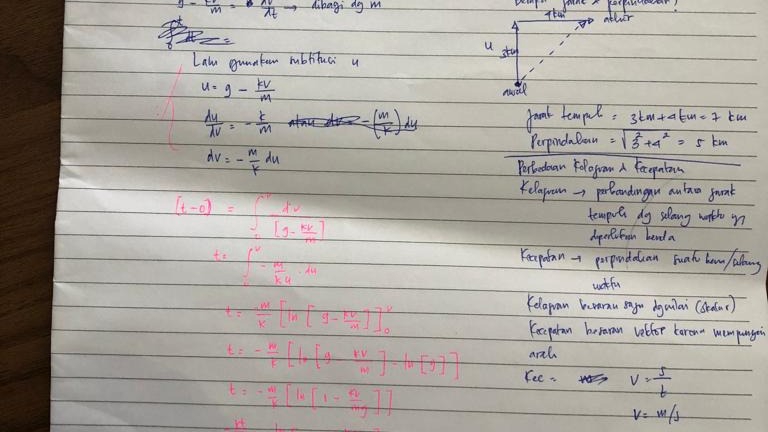 g - kv/m = dv/dt → dibagi dg m
Lalu gunakan subtitusi u
u = g - kv/m
du/dv = - k/m - (m/k) du
dv = - m/k du
[t-0] = ∫₀ᵛ dv/[g - kv/m]
t = ∫₀ᵛ - m/ku . du
t = - m/k [ln [g - kv/m]]₀ᵛ
t = - m/k [ln [g - kv/m] - ln [g]]
t = - m/k [ln [1 - kv/mg]]
4km akhir
u 3km
awal
Jarak tempuh = 3km + 4km = 7 km
Perpindahan = √3² + 4² = 5 km
Perbedaan Kelajuan & Kecepatan
Kelajuan → perbandingan antara jarak
tempuh dg selang waktu yg
diperlukan benda
Kecepatan → perpindahan suatu /selang
waktu
Kelajuan besaran (skalar)
Kecepatan besaran vektor karena mempunyai
arah
Kec = V = s/t
V = m/s